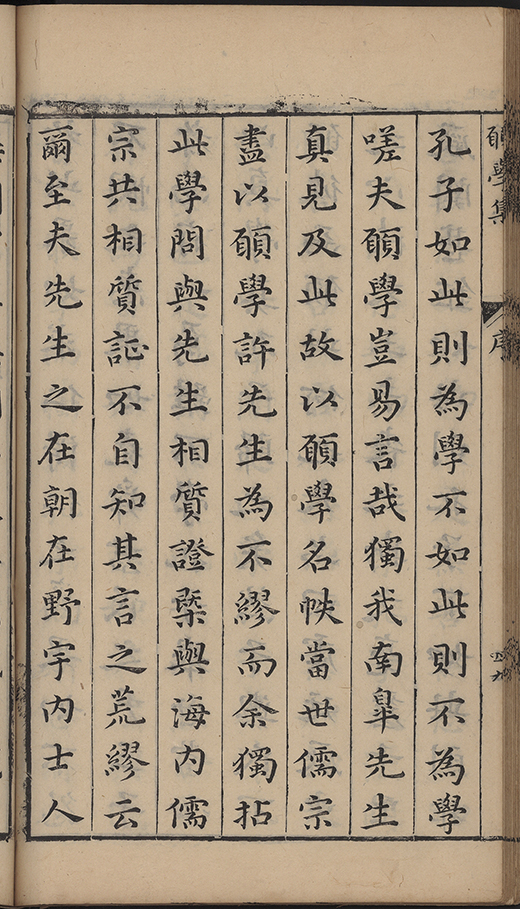 願學集 序
孔子如此則為學不如此則不為學
嗟夫願學豈易言哉獨我南臯先生
真見及此故以願學名帙當世儒宗
盡以願學許先生為不繆而余獨拈
此學問與先生相質證槩與海内儒
宗共相質証不自知其言之荒繆云
爾至夫先生之在朝在野宇内士人